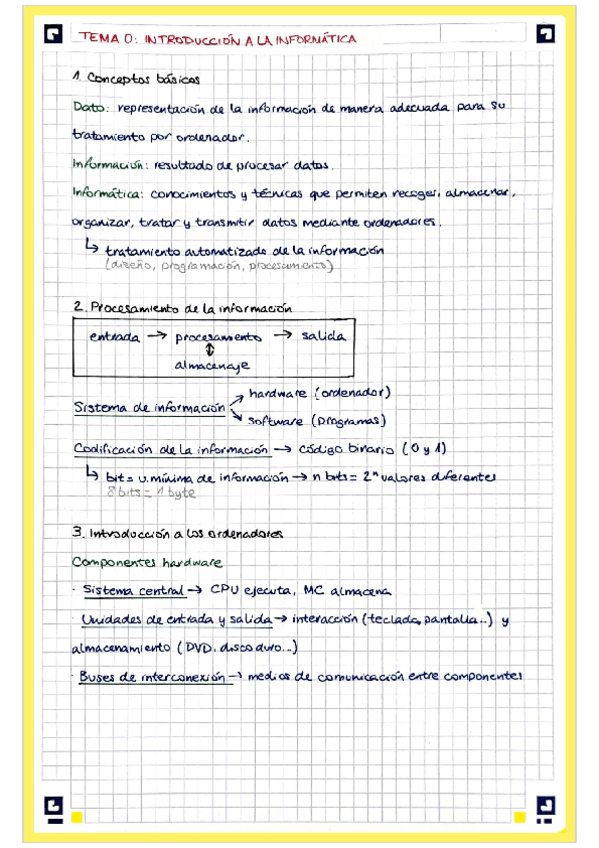 TEMA 0: INTRODUCCIÓN A LA INFORMÁTICA
1. Conceptos básicos
Dato: representación de la información de manera adecuada para su
tratamiento por ordenador.
Información: resultado de procesar datos.
Informática: conocimientos y técnicas que permiten recoger, almacenar,
organizar, tratar y transmitir datos mediante ordenadores.
↳ tratamiento automatizado de la información
(diseño, programación, procesamiento)
2. Procesamiento de la información
entrada → procesamento → salida
↕
almacenaje
Sistema de información ↗ hardware (ordenador)
↘ software (programas)
Codificación de la información → código binario (0 y 1)
↳ bit = u.mínima de información → n bits = 2ⁿ valores diferentes
8 bits = 1 byte
3. Introducción a los ordenadores
Componentes hardware
· Sistema central → CPU ejecuta, MC almacena
· Unidades de entrada y salida → interacción (teclado, pantalla..) y
almacenamiento (DVD, disco duro...)
· Buses de interconexión → medios de comunicación entre componentes